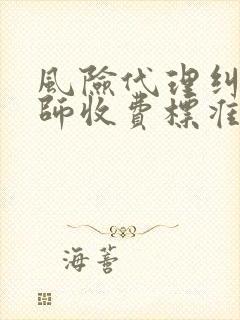 風險代理糾
師收費標准
海薈